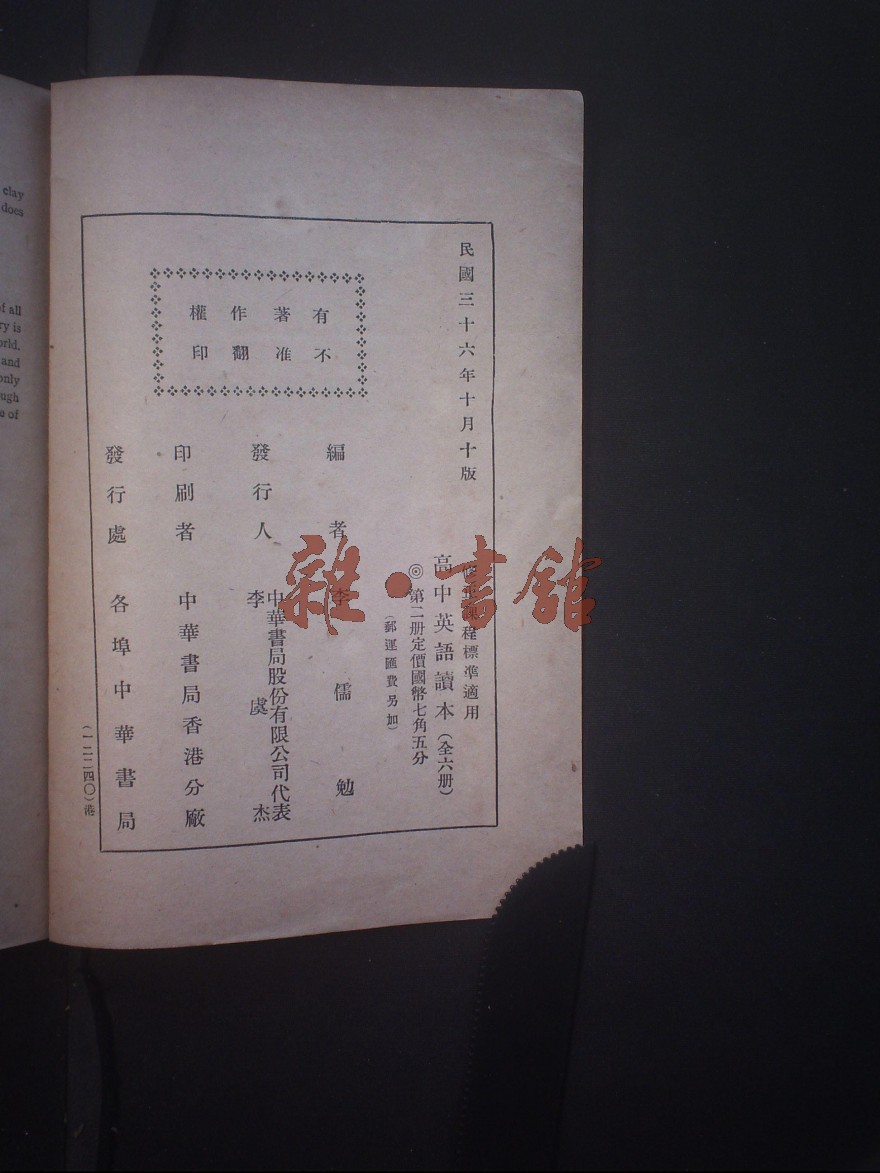 clay
does
of all
ry is
orld.
and
only
ough
e of
民國三十六年十月十版
有著作權
不准翻印
修正課程標準適用
高中英語讀本（全六册）
◎第二册定價國幣七角五分
（郵運匯費另加）
編者 李儒勉
發行人 中華書局股份有限公司代表
李虞杰
印刷者 中華書局香港分廠
發行處 各埠中華書局
（一二二四〇）港
雜·書館